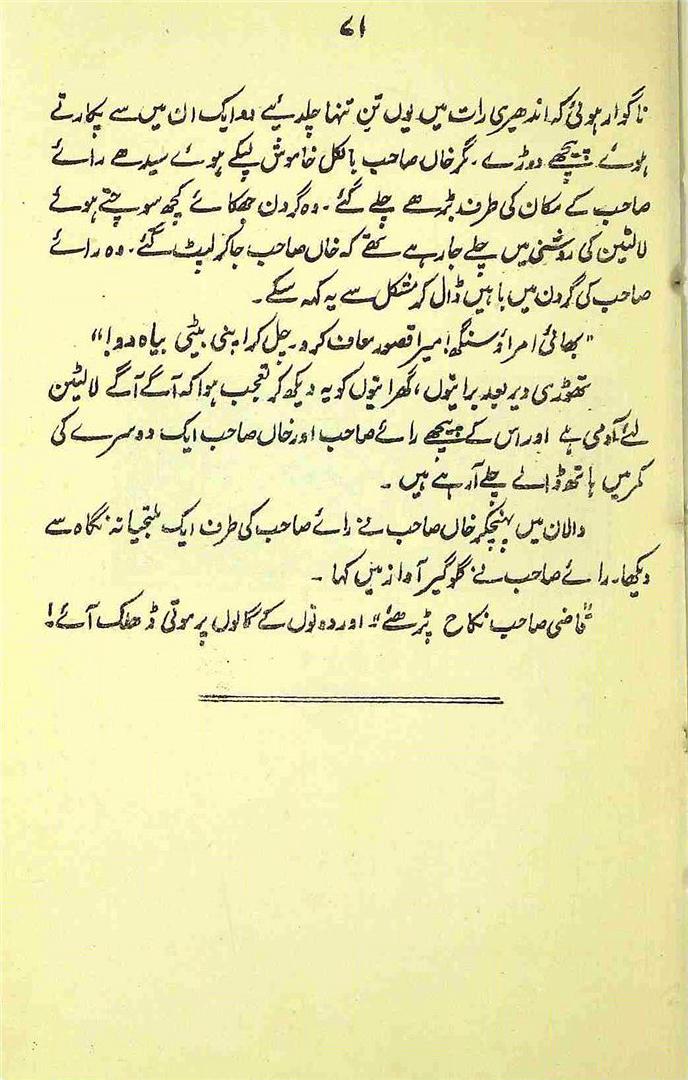 ۷۱
ناگوار ہوئی کہ اندھیری رات میں یوں تنِ تنہا چلدئیے دو ایک ان میں سے پکارتے
ہوئے پیچھے دوڑے۔ مگر خاں صاحب بالکل خاموش لپکے ہوئے سیدھے رائے
صاحب کے مکان کی طرف بڑھے چلے گئے۔ وہ گردن جھکائے کچھ سوچتے ہوئے
لالٹین کی روشنی میں چلے جا رہے تھے کہ خاں صاحب جاکر لپٹ گئے۔ وہ رائے
صاحب کی گردن میں باہیں ڈال کر مشکل سے یہ کہہ سکے۔
"بھائی امراؤ سنگھ! میرا قصور معاف کرو۔ چل کر اپنی بیٹی بیاہ دو!"
تھوڑی دیر بعد براتیوں، گھراتیوں کو یہ دیکھ کر تعجب ہوا کہ آگے آگے لالٹین
لئے آدمی ہے اور اس کے پیچھے رائے صاحب اور خاں صاحب ایک دوسرے کی
کمر میں ہاتھ ڈالے چلے آرہے ہیں۔
دالان میں پہنچکر خاں صاحب نے رائے صاحب کی طرف ایک ملتجیانہ نگاہ سے
دیکھا۔ رائے صاحب نے گلوگیر آواز میں کہا۔
"قاضی صاحب نکاح پڑھئے" اور دونوں کے گالوں پر موتی ڈھلک آئے!